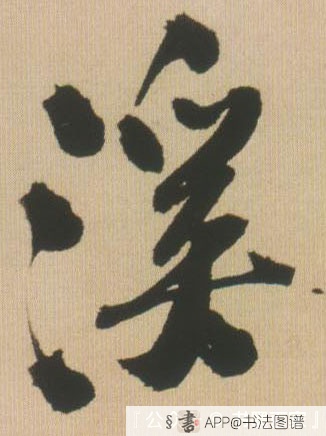 溪
§書 APP@书法图谱